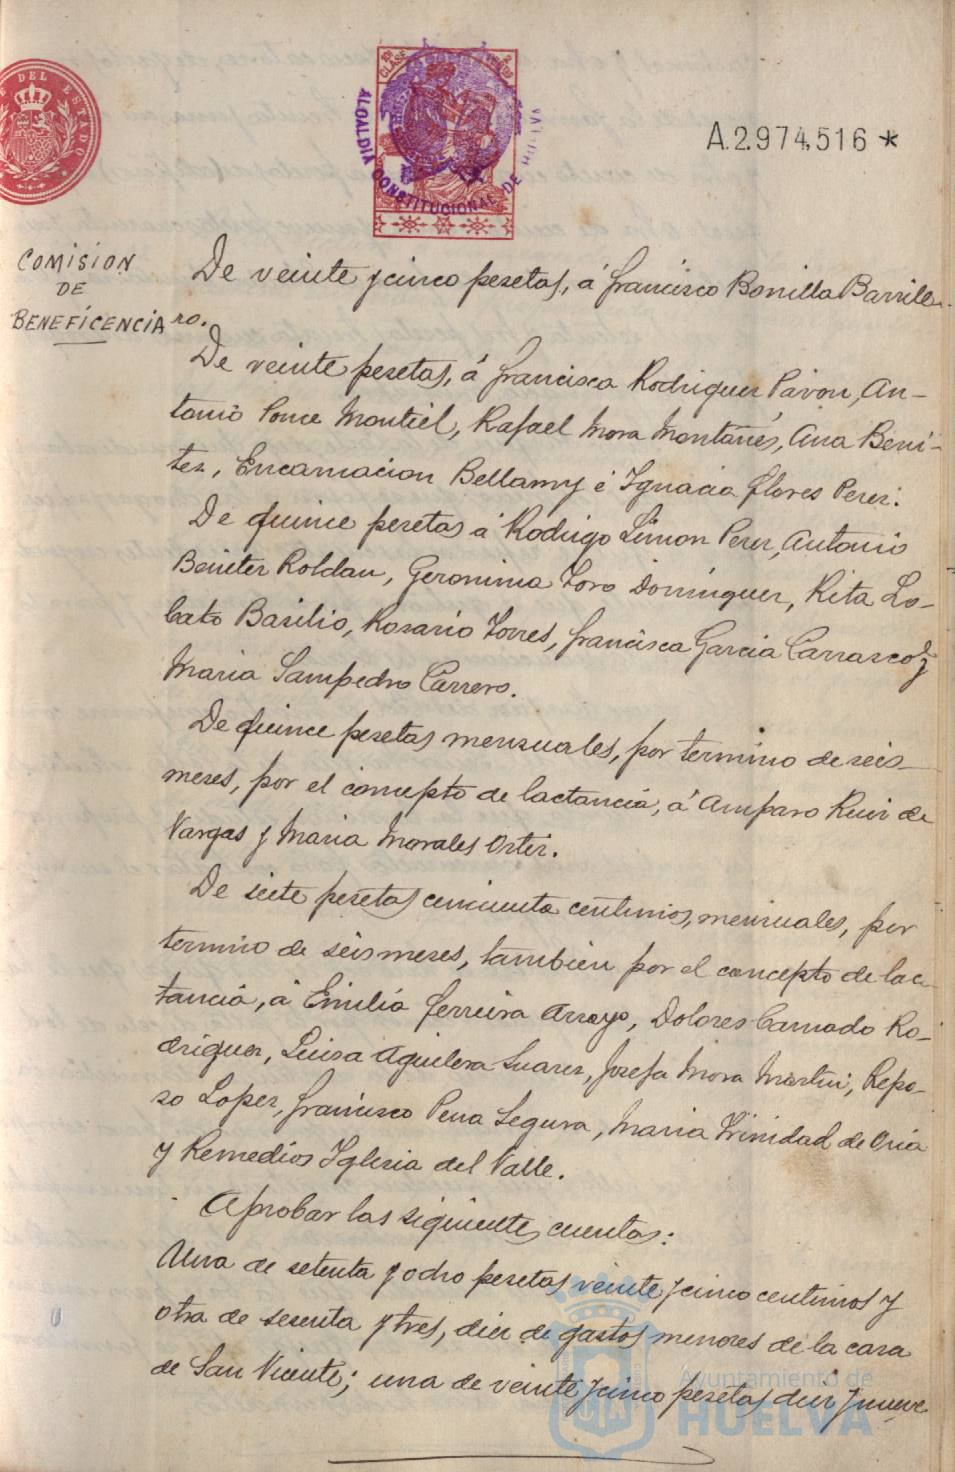 DEL ESTADO
10ª CLASE
ALCALDIA CONSTITUCIONAL DE HUELVA
A.2.974,516 *
COMISIÓN
DE
BENEFICENCIA
De veinte y cinco pesetas, á Francisco Bonilla Barrile-
ro.
De veinte pesetas, á Francisca Rodriguez Pavon, An-
tonio Ponce Montiel, Rafael Mora Montañés, Ana Beni-
tez, Encarnacion Bellamy é Ignacia Flores Perez.
De quince pesetas á Rodrigo Limon Perez, Antonio
Benitez Roldan, Geronima Toro Dominguez, Rita Lo-
bato Basilio, Rosario Torres, Francisca Garcia Carrasco y
Maria Sampedro Carrero.
De quince pesetas mensuales, por termino de seis
meses, por el concepto de lactancia, á Amparo Ruiz de
Vargas y Maria Morales Ortiz.
De siete pesetas cincuenta centimos, mensuales, por
termino de seis meses, tambien por el concepto de lac-
tancia, á Emilia Ferreira Arroyo, Dolores Camado Ro-
driguez, Luisa Aguilera Suarez, Josefa Mora Martin, Repo-
so Lopez, Francisco Pena Segura, Maria Trinidad de Oria
y Remedios Iglesia del Valle.
Aprobar las siguientes cuentas:
Una de setenta y ocho pesetas veinte y cinco centimos y
otra de sesenta y tres, diez de gastos menores de la casa
de San Vicente; una de veinte y cinco pesetas diez y nueve
Ayuntamiento de
HUELVA